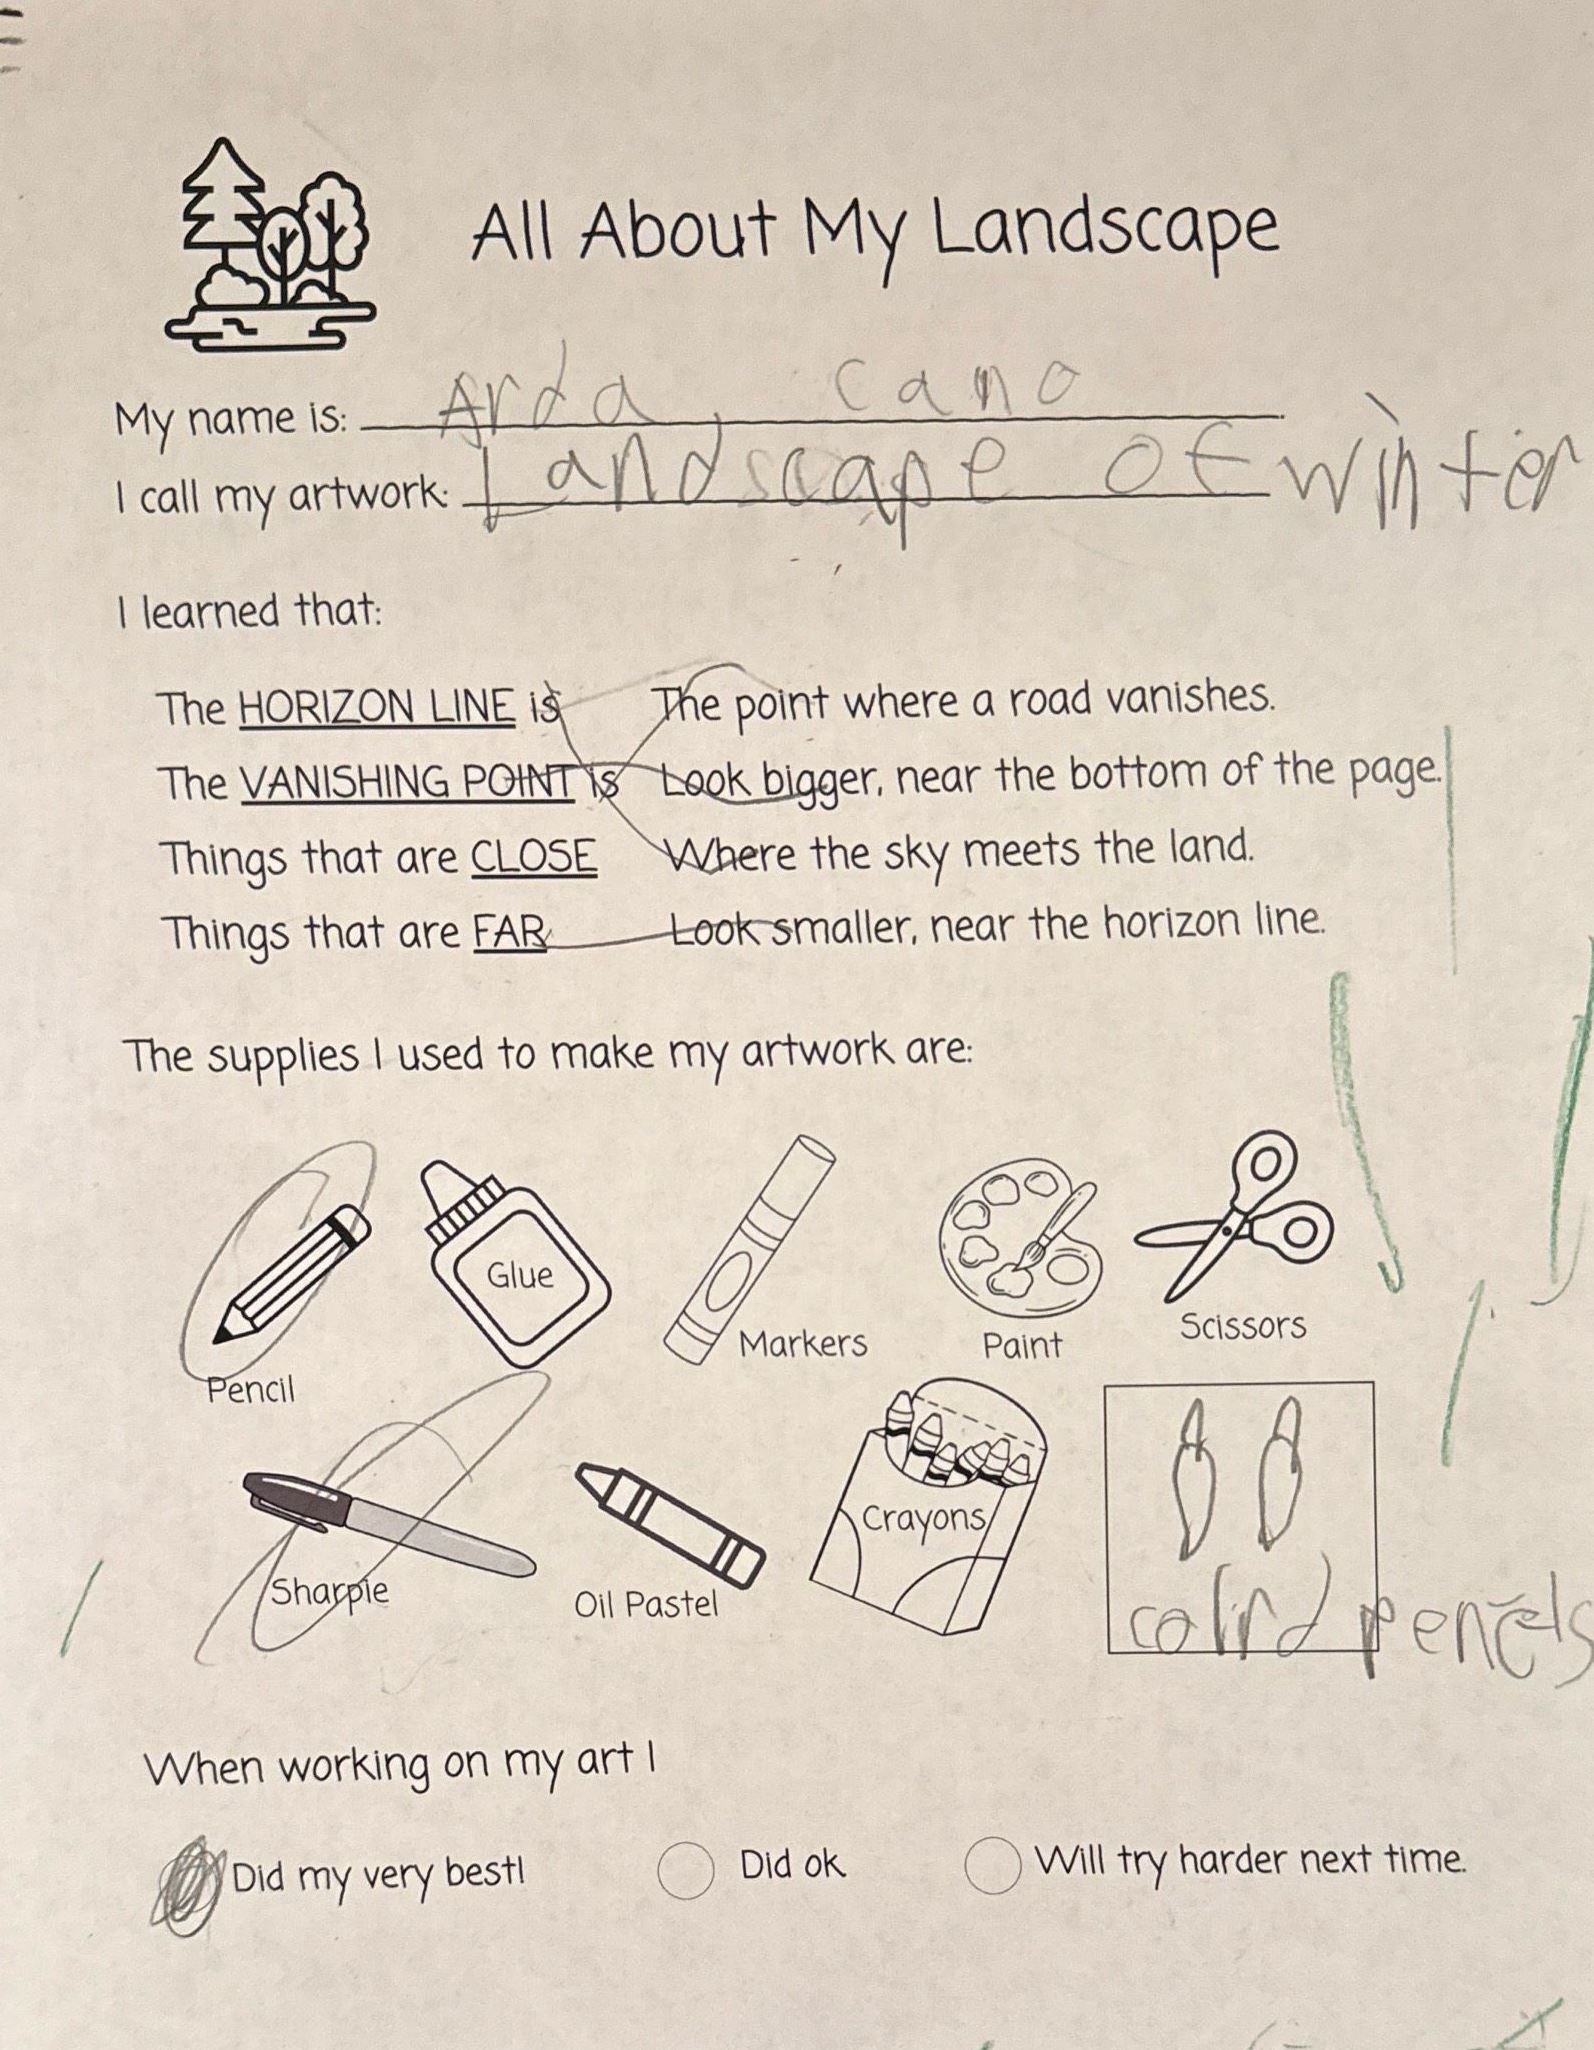 All About My Landscape
My name is: Arda cano
I call my artwork: Landscape of winter
I learned that:
The HORIZON LINE is The point where a road vanishes.
The VANISHING POINT is Look bigger, near the bottom of the page.
Things that are CLOSE Where the sky meets the land.
Things that are FAR Look smaller, near the horizon line.
The supplies I used to make my artwork are:
Glue
Markers Paint Scissors
Pencil
Crayons
Sharpie Oil Pastel
colird pencels
When working on my art I
Did my very best! Did ok Will try harder next time.